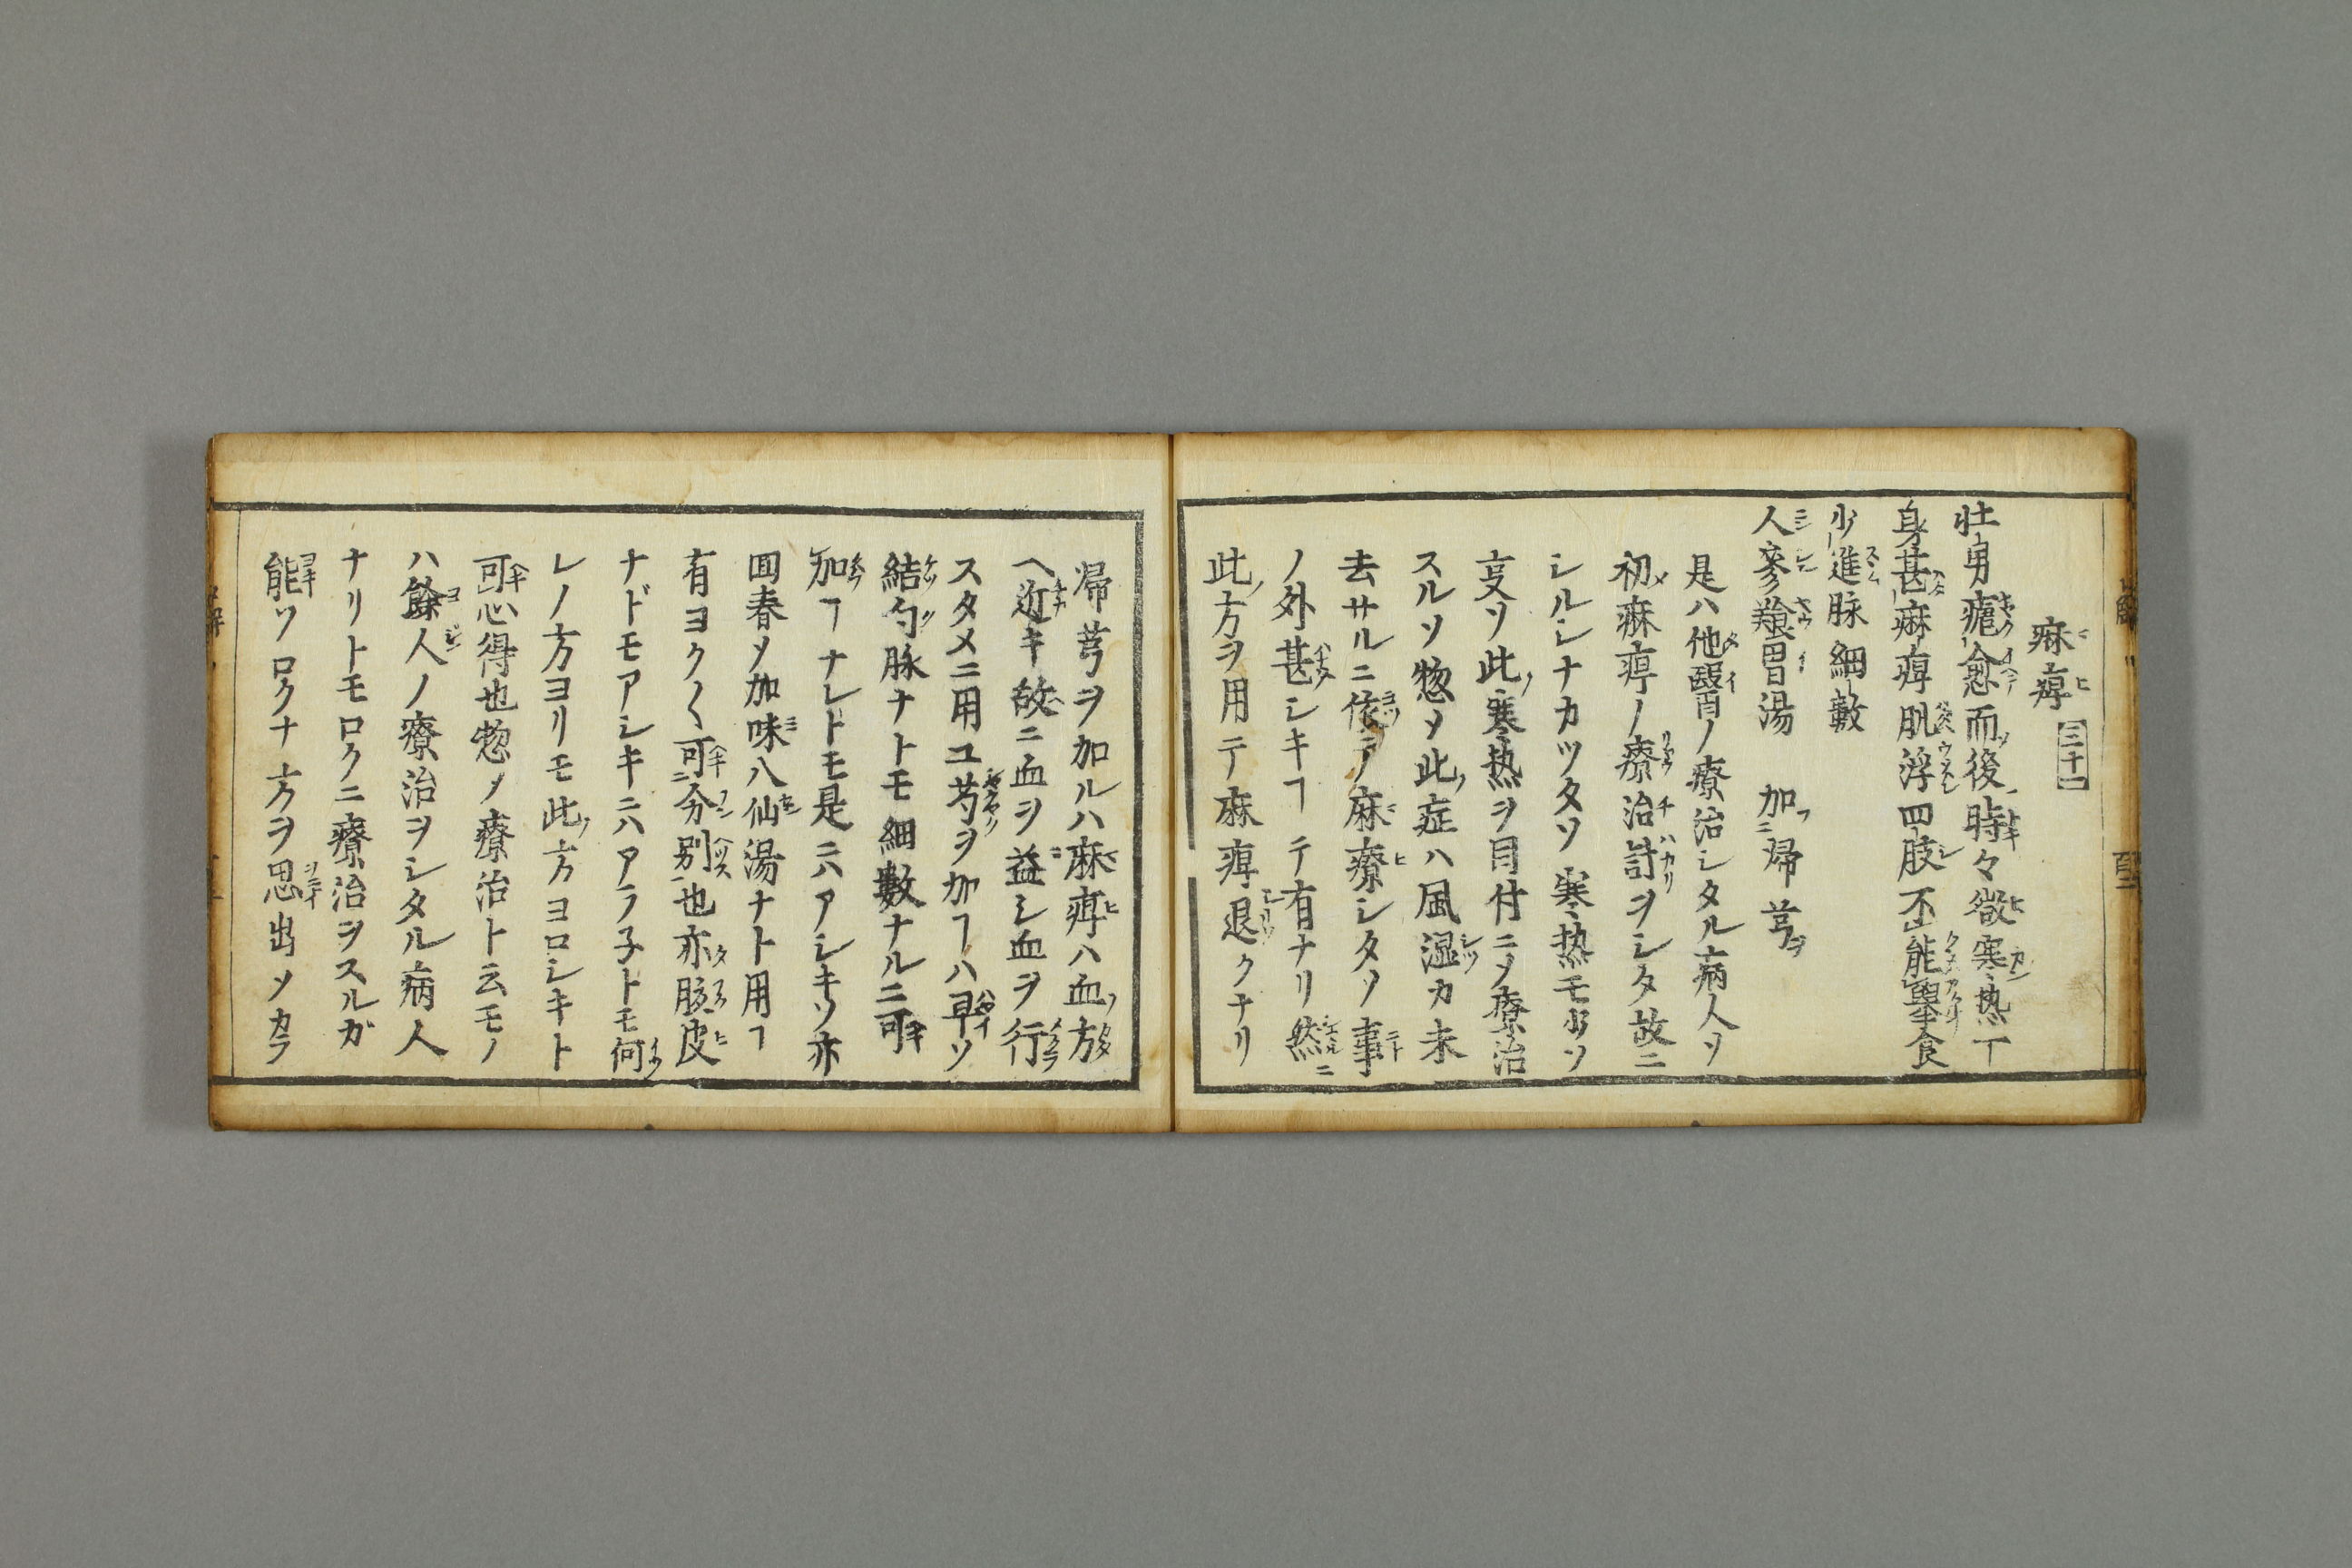 麻痺 三十一
壮男瘧愈而後時々微寒热丁
身甚麻痺肌浮四肢不能擧食
少進脉細數
人參養胃湯 加歸芎
是ハ他醫ノ療治シタル病人ソ
初麻痺ノ療治計ヲシタ故ニ
シルシナカツタソ寒热モ少ソ
㕝ソ此寒热ヲ目付ニメ療治
スルソ惣メ此症ハ風湿カ未
去サルニ依テ麻療シタソ事
ノ外甚シキヿ テ有ナリ然ニ
此方ヲ用テ麻痺退クナリ
歸芎ヲ加ルハ麻痺ハ血方
ヘ近キ故ニ血ヲ益シ血ヲ行
スタメニ用ユ芍ヲ加ヿハ早ソ
結勾脉ナトモ細數ナルニ可
加ヿナレトモ是ニハアシキソ亦
回春メ加味八仙湯ナト用ヿ
有ヨク〱可分別也亦脉皮
ナドモアシキニハアラ子トモ何
レノ方ヨリモ此方ヨロシキト
可心得也惣メ療治ト云モノ
ハ餘人ノ療治ヲシタル病人
ナリトモロクニ療治ヲスルガ
能ソロクナ方ヲ思出ソカラ